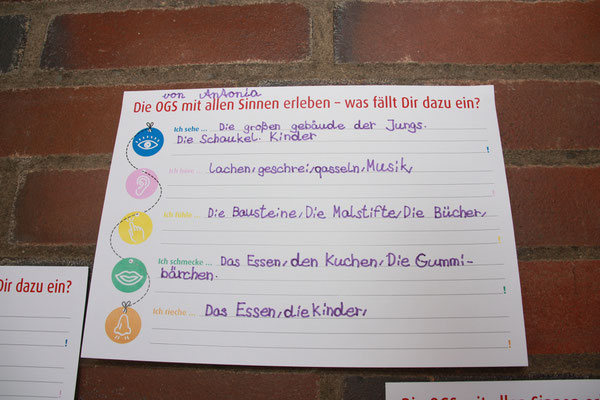 von Antonia
Die OGS mit allen Sinnen erleben – was fällt Dir dazu ein?
Ich sehe ... Die großen gebäude der Jungs.
Die Schaukel. Kinder
!
Ich höre ... lachen, geschrei, qasseln, Musik,
!
Ich fühle ... Die Bausteine, Die Malstifte, Die Bücher,
!
Ich schmecke ... Das Essen, den Kuchen, Die Gummi-
bärchen.
!
Ich rieche ... Das Essen, die kinder,
!
Dir dazu ein?
!
!
Die OGS mit allen Sinnen